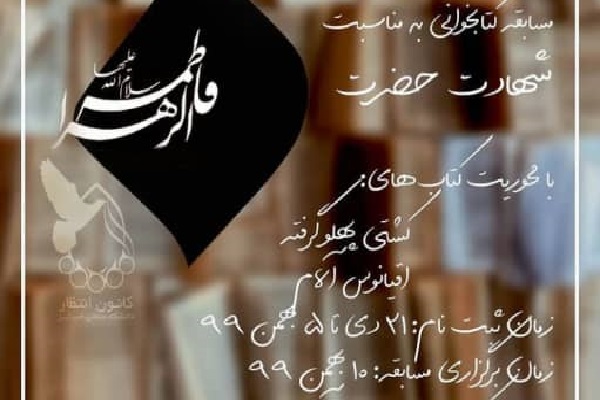 مسابقه کتابخوانی به مناسبت
شهادت حضرت
فاطمه الزهرا
سلام الله علیها
با محوریت کتاب های:
کشتی پهلو گرفته
اقیانوس الام
زمان ثبت نام: ۲۱ دی تا ۵ بهمن ۹۹
زمان برگزاری مسابقه: ۱۰ بهمن ۹۹
کانون انتظار